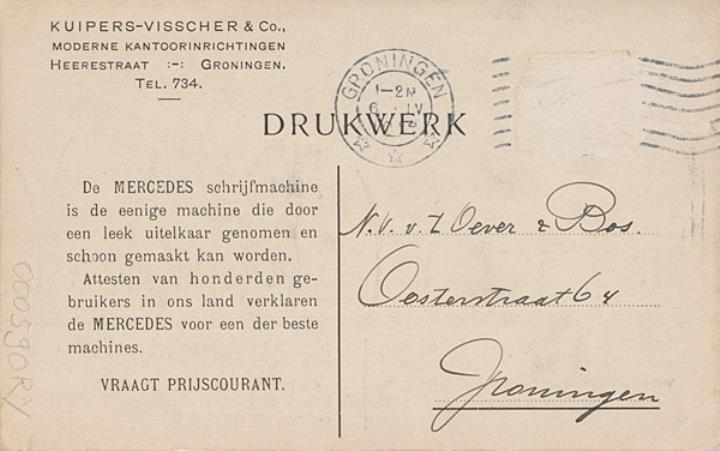 KUIPERS-VISSCHER & Co.,
MODERNE KANTOORINRICHTINGEN
HEERESTRAAT :-: GRONINGEN.
TEL. 734.
GRONINGEN
1-2N
6 IV
DRUKWERK
De MERCEDES schrijfmachine
is de eenige machine die door
een leek uitelkaar genomen en
schoon gemaakt kan worden.
Attesten van honderden ge-
bruikers in ons land verklaren
de MERCEDES voor een der beste
machines.
VRAAGT PRIJSCOURANT.
N.V. v. t Oever & Bos.
Oosterstraat 64
Groningen
000590RY